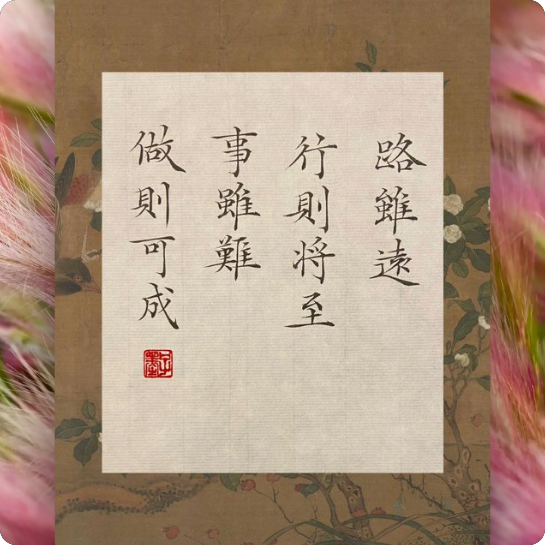 路雖遠
行則将至
事雖難
做則可成